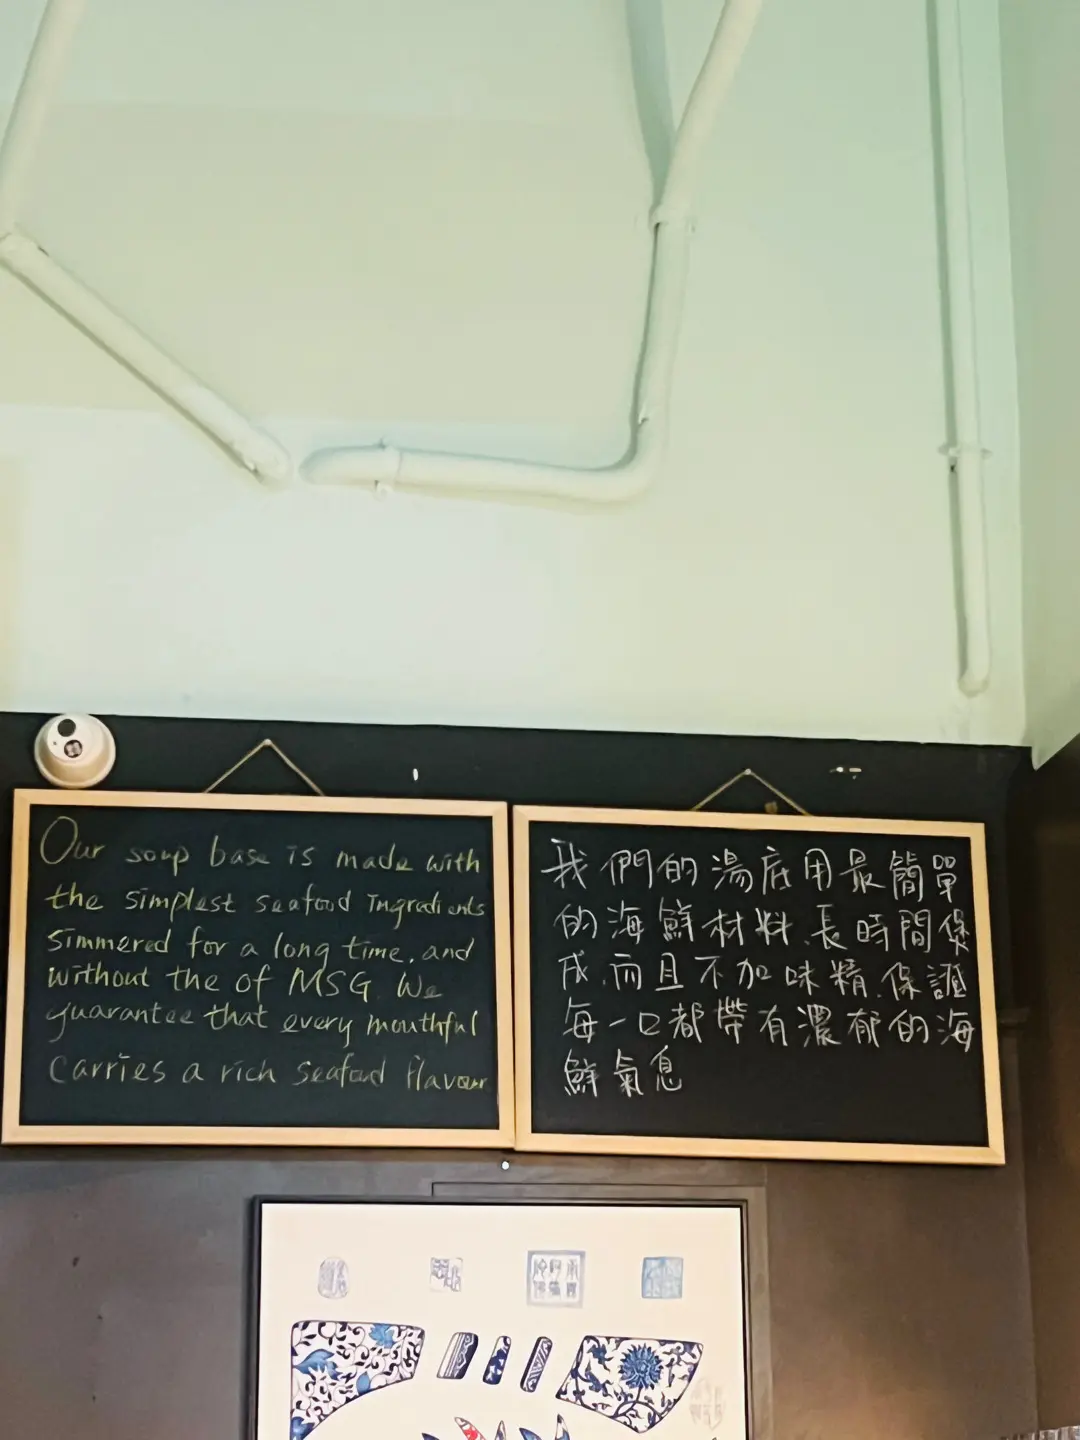 Our soup base is made with
the simplest seafood Ingredients
simmered for a long time, and
without the of MSG. We
guarantee that every mouthful
carries a rich seafood flavour
我們的湯底用最簡單
的海鮮材料、長時間煲
成、而且不加味精、保證
每一口都帶有濃郁的海
鮮氣息